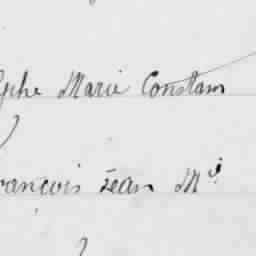 ephe Marie Constam
rancois Jean Mi